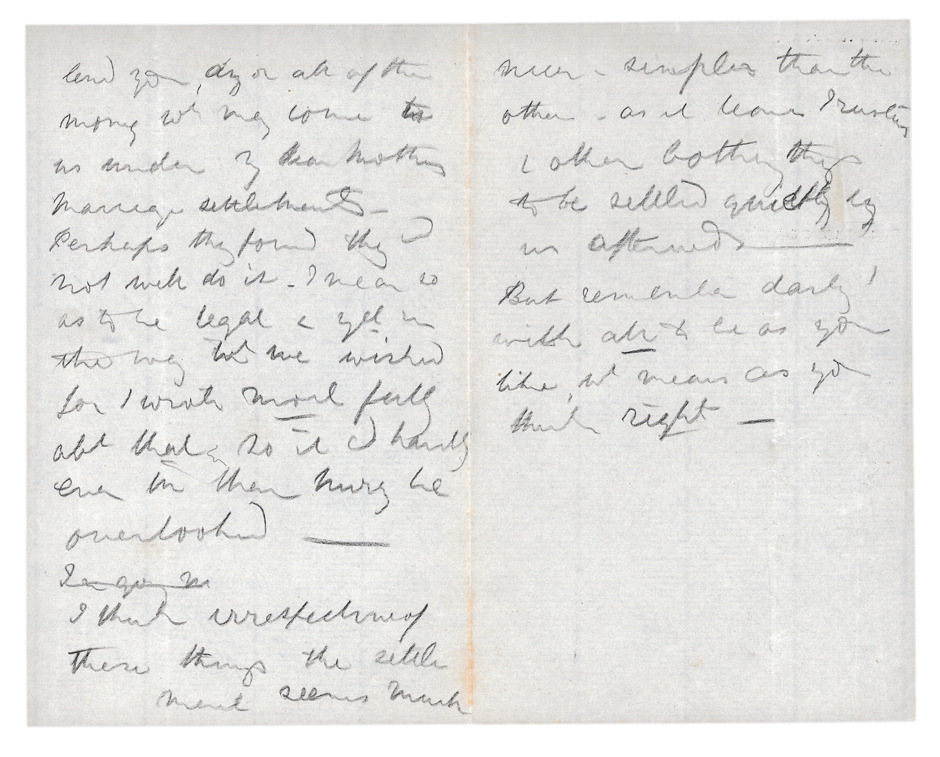 lend you, any or all of the
money wh may come to
us under my dear Mothers
Marriage settlements –
Perhaps they found they cd
not well do it – I mean so
as to be legal & yet in
the way wh we wished
for I wrote most fully
abt that, so it cd hardly
even in their hurry be
overlooked —
I
I think irrespective of
these things the settle
ment seems much
nicer – simpler than the
other – as it leaves Trustees
& other bothery things
to be settled quietly by
us afterwards —
But remember darling
with all to be as you
like, wh means as you
think right —